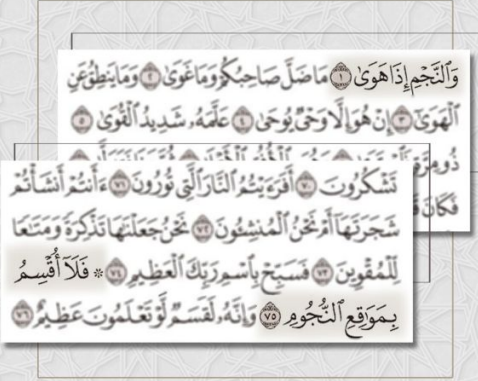 وَٱلنَّجْمِ إِذَا هَوَىٰ ١ مَا ضَلَّ صَاحِبُكُمْ وَمَا غَوَىٰ ٢ وَمَا يَنطِقُ عَنِ
ٱلْهَوَىٰٓ ٣ إِنْ هُوَ إِلَّا وَحْىٌ يُوحَىٰ ٤ عَلَّمَهُۥ شَدِيدُ ٱلْقُوَىٰ ٥
ذُو مِرَّةٍ
فَكَانَ
تَشْكُرُونَ ٧٠ أَفَرَءَيْتُمُ ٱلنَّارَ ٱلَّتِى تُورُونَ ٧١ ءَأَنتُمْ أَنشَأْتُمْ
شَجَرَتَهَآ أَمْ نَحْنُ ٱلْمُنشِـُٔونَ ٧٢ نَحْنُ جَعَلْنَٰهَا تَذْكِرَةً وَمَتَٰعًا
لِّلْمُقْوِينَ ٧٣ فَسَبِّحْ بِٱسْمِ رَبِّكَ ٱلْعَظِيمِ ٧٤ * فَلَآ أُقْسِمُ
بِمَوَٰقِعِ ٱلنُّجُومِ ٧٥ وَإِنَّهُۥ لَقَسَمٌ لَّوْ تَعْلَمُونَ عَظِيمٌ ٧٦